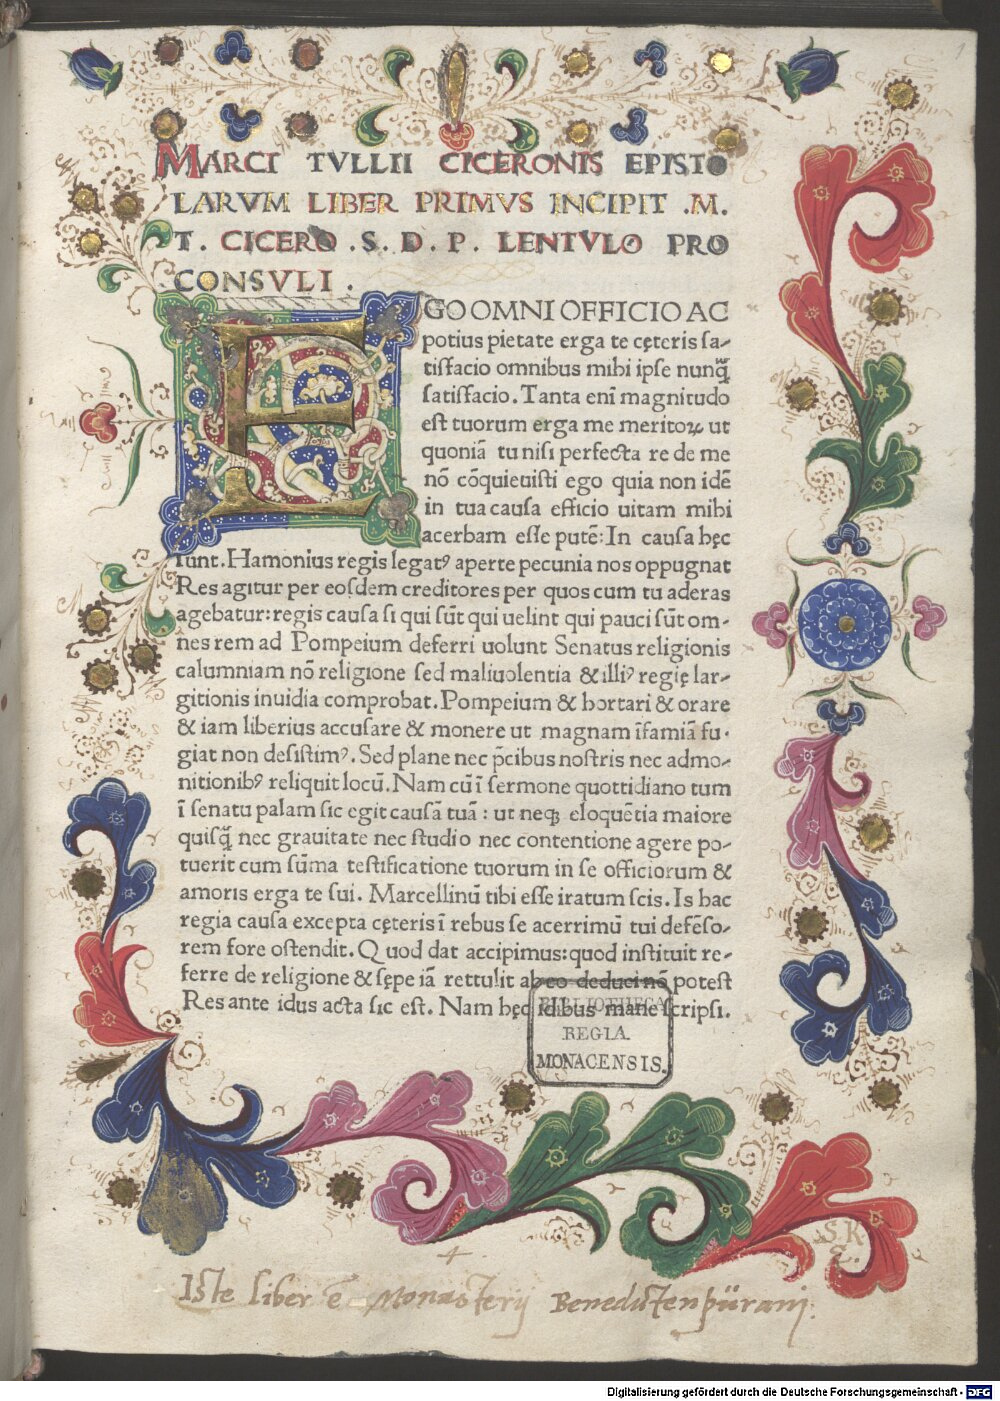 1
MARCI TVLLII CICERONIS EPISTO
LARVM LIBER PRIMVS INCIPIT .M.
T. CICERO .S. D. P. LENTVLO PRO
CONSVLI .
EGO OMNI OFFICIO AC
potius pietate erga te cęteris ſa-
tiſfacio omnibus mihi ipſe nunq̃
ſatiſfacio. Tanta eni magnitudo
eſt tuorum erga me meritoꝝ ut
quoniã tu niſi perfecta re de me
nõ cõquieuiſti ego quia non idẽ
in tua cauſa efficio uitam mihi
acerbam eſſe putẽ: In cauſa hęc
ſunt. Hamonius regis legatꝰ aperte pecunia nos oppugnat
Res agitur per eoſdem creditores per quos cum tu aderas
agebatur: regis cauſa ſi qui ſũt qui uelint qui pauci ſũt om-
nes rem ad Pompeium deferri uolunt Senatus religionis
calumniam nõ religione ſed maliuolentia & illiꝰ regię lar-
gitionis inuidia comprobat. Pompeium & hortari & orare
& iam liberius accuſare & monere ut magnam ĩfamiã fu-
giat non deſiſtimꝰ. Sed plane nec p̃cibus noſtris nec admo-
nitionibꝰ reliquit locũ. Nam cũ ĩ ſermone quottidiano tum
ĩ ſenatu palam ſic egit cauſã tuã : ut neqꝫ eloquẽtia maiore
quiſq̃ nec grauitate nec ſtudio nec contentione agere po-
tuerit cum ſũma teſtificatione tuorum in ſe officiorum &
amoris erga te ſui. Marcellinũ tibi eſſe iratum ſcis. Is hac
regia cauſa excepta cęteris ĩ rebus ſe acerrimũ tui defẽſo-
rem fore oſtendit. Quod dat accipimus: quod inſtituit re-
ferre de religione & ſępe iã rettulit ab eo deduci nõ poteſt
Res ante idus acta ſic eſt. Nam hęc idibus mane ſcripſi.
BIBLIOTHECA
REGIA
MONACENSIS.
S. K
Iste liber ē Monasterij Benedictenpürani.
Digitalisierung gefördert durch die Deutsche Forschungsgemeinschaft - DFG